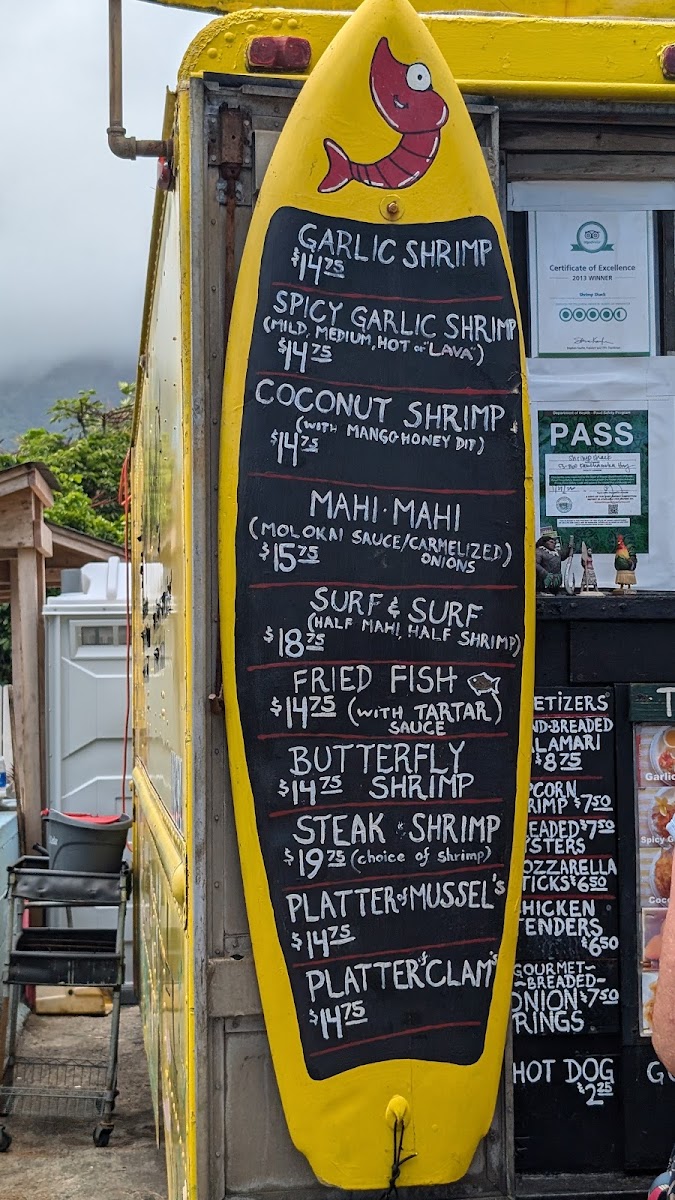 GARLIC SHRIMP
$14.75
SPICY GARLIC SHRIMP
(MILD, MEDIUM, HOT or "LAVA")
$14.75
COCONUT SHRIMP
(WITH MANGO-HONEY DIP)
$14.75
MAHI-MAHI
(MOLOKAI SAUCE/CARMELIZED)
ONIONS
$15.75
SURF & SURF
(HALF MAHI, HALF SHRIMP)
$18.75
FRIED FISH
$14.75 (WITH TARTAR)
SAUCE
BUTTERFLY
$14.75 SHRIMP
STEAK & SHRIMP
$19.75 (choice of shrimp)
PLATTER of MUSSEL's
$14.75
PLATTER of CLAM's
$14.75
Certificate of Excellence
2013 WINNER
Shrimp Shack
Department of Health - Food Safety Program
PASS
Shrimp Shack
ETIZERS
ND-BREADED
LAMARI
$8.75
PCORN
RIMP $7.50
EADED $7.50
STERS
OZZARELLA
TICKS $6.50
HICKEN
TENDERS
$6.50
GOURMET~
~BREADED~
ONION $7.50
RINGS
HOT DOG
$2.25
T
Garlic
Spicy G
Coco
G